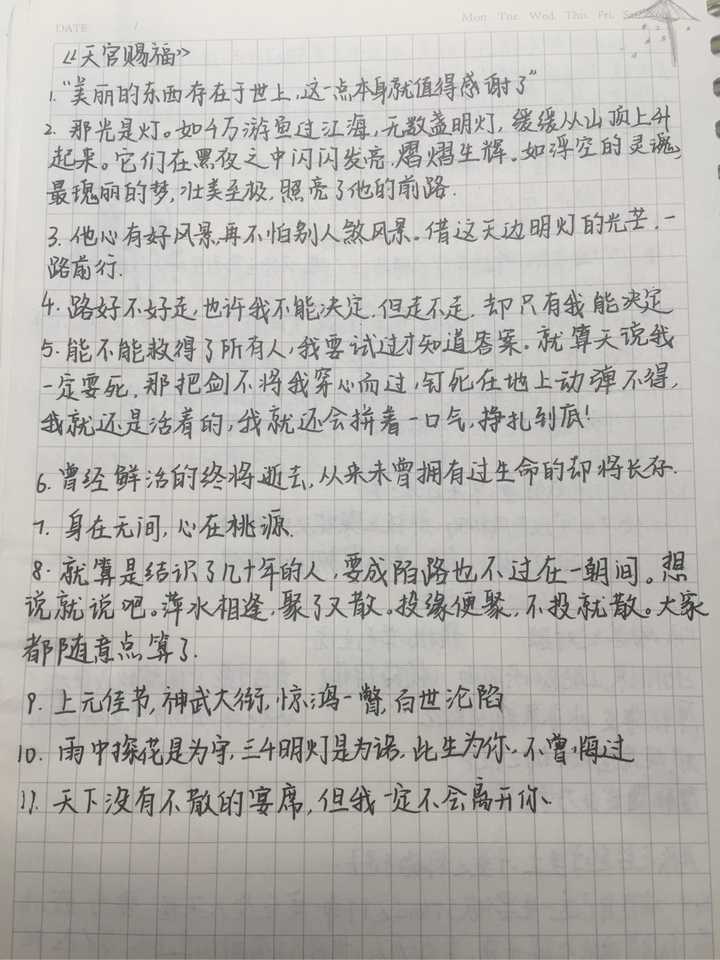 DATE
Mon Tue Wed Thu Fri
《天官赐福》
1."美丽的东西存在于世上,这一点本身就值得感谢了"
2. 那光是灯。如千万游鱼过江海,无数盏明灯,缓缓从山顶上升
起来。它们在黑夜之中闪闪发亮,熠熠生辉。如浮空的灵魂,
最瑰丽的梦,壮美至极,照亮了他的前路.
3. 他心有好风景,再不怕别人煞风景。借这天边明灯的光芒.一
路前行.
4. 路好不好走,也许我不能决定.但走不走.却只有我能决定
5. 能不能救得了所有人,我要试过才知道答案。就算天说我
一定要死.那把剑不将我穿心而过,钉死在地上动弹不得,
我就还是活着的,我就还会拼着一口气,挣扎到底!
6. 曾经鲜活的终将逝去,从来未曾拥有过生命的却将长存.
7. 身在无间,心在桃源.
8. 就算是结识了几十年的人,要成陌路也不过在一朝间。想
说就说吧。萍水相逢,聚了又散。投缘便聚,不投就散。大家
都随意点算了.
9. 上元佳节,神武大街,惊鸿一瞥,百世沦陷
10. 雨中探花是为守,三千明灯是为诺,此生为你、不曾悔过
11. 天下没有不散的宴席,但我一定不会离开你、